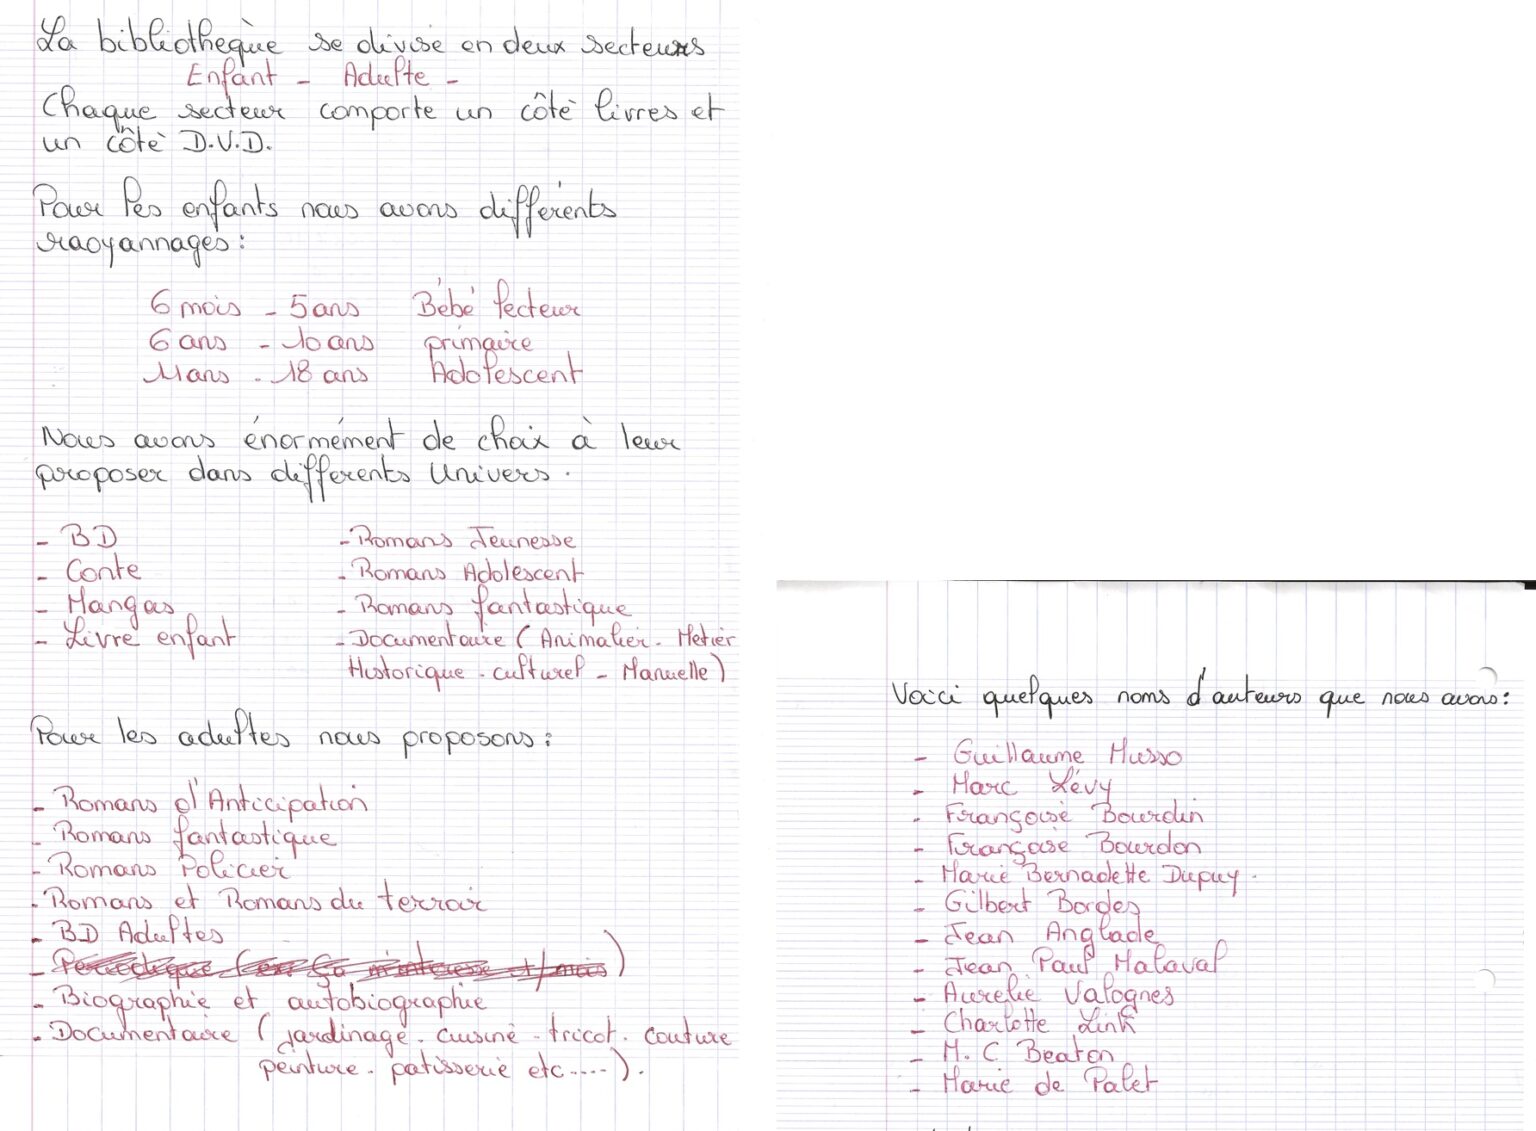 La bibliothèque se divise en deux secteurs
Enfant - Adulte -
Chaque secteur comporte un côté livres et
un côté D.V.D.
Pour les enfants nous avons différents
raoyannages :
6 mois - 5 ans Bébé lecteur
6 ans - 10 ans primaire
11 ans - 18 ans Adolescent
Nous avons énormément de choix à leur
proposer dans différents Univers.
- BD
- Conte
- Mangas
- Livre enfant
- Romans Jeunesse
- Romans Adolescent
- Romans fantastique
- Documentaire ( Animalier - Metier
Historique - culturel - Manuelle )
Pour les adultes nous proposons :
- Romans d'Anticipation
- Romans fantastique
- Romans Policier
- Romans et Romans du terroir
- BD Adultes
- Biographie et autobiographie
- Documentaire ( jardinage - cuisine - tricot - couture
peinture - patisserie etc.... ).
Voici quelques noms d'auteurs que nous avons :
- Guillaume Musso
- Marc Lévy
- Françoise Bourdin
- Françoise Bourdon
- Marie Bernadette Dupuy.
- Gilbert Bordes
- Jean Anglade
- Jean Paul Malaval
- Aurelie Valognes
- Charlotte Link
- M. C Beaton
- Marie de Palet